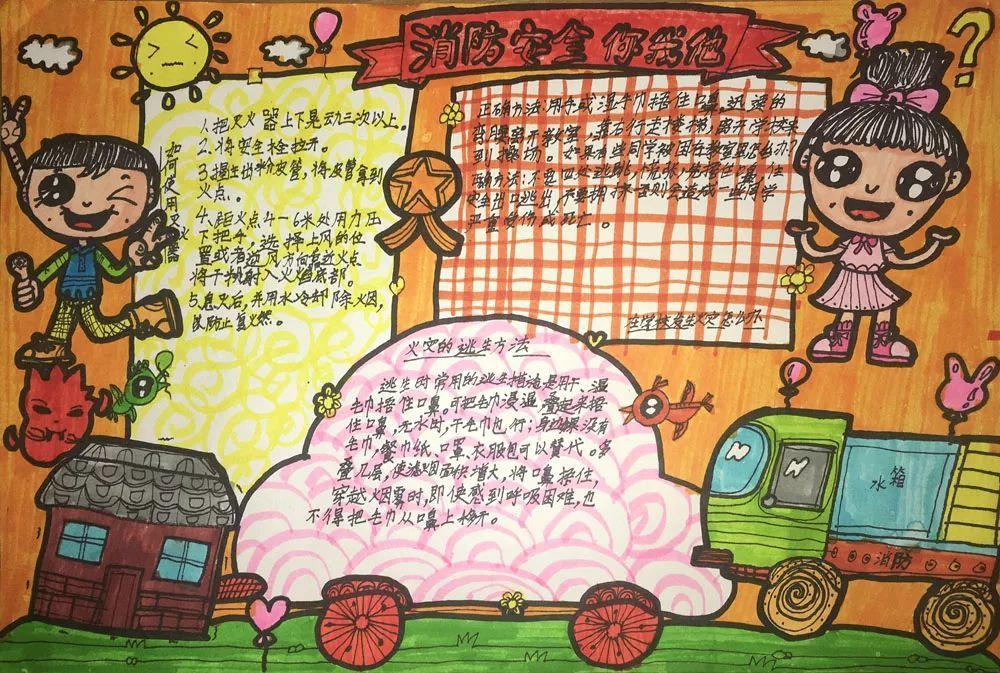 消防安全 你我他
如何使用灭火器
1.把灭火器上下晃动三次以上。
2.将安全栓拉开。
3.握住出粉皮管，将皮管拿到
火点。
4.距火点4—6米处用力压
下把手，选择上风的位
置或者逆风方向靠近火点
将干粉射入火焰底部。
5.息灭后，并用水冷却除烟，
以防止复燃。
正确方法:用手或湿毛巾捂住口鼻。迅速的
弯腰离开教室，靠右行走楼梯，离开学校来
到操场。如果有些同学被困在教室里怎么办?
正确方法:不要四处逃跑，
安全出口逃出，不要拥挤否则会造成一些同学
严重受伤或死亡。
在学校发生火灾怎么办
火灾的逃生方法
逃生时常用的逃生措施是用干、湿
毛巾捂住口鼻。可把毛巾浸湿，叠起来捂
住口鼻，无水时，干毛巾也行；身边如没有
毛巾，餐巾纸、口罩、衣服也可以替代。多
叠几层，使滤烟面积增大，将口鼻捂住，
穿越烟雾时，即使感到呼吸困难，也
不得把毛巾从口鼻上移开。
水箱
消防